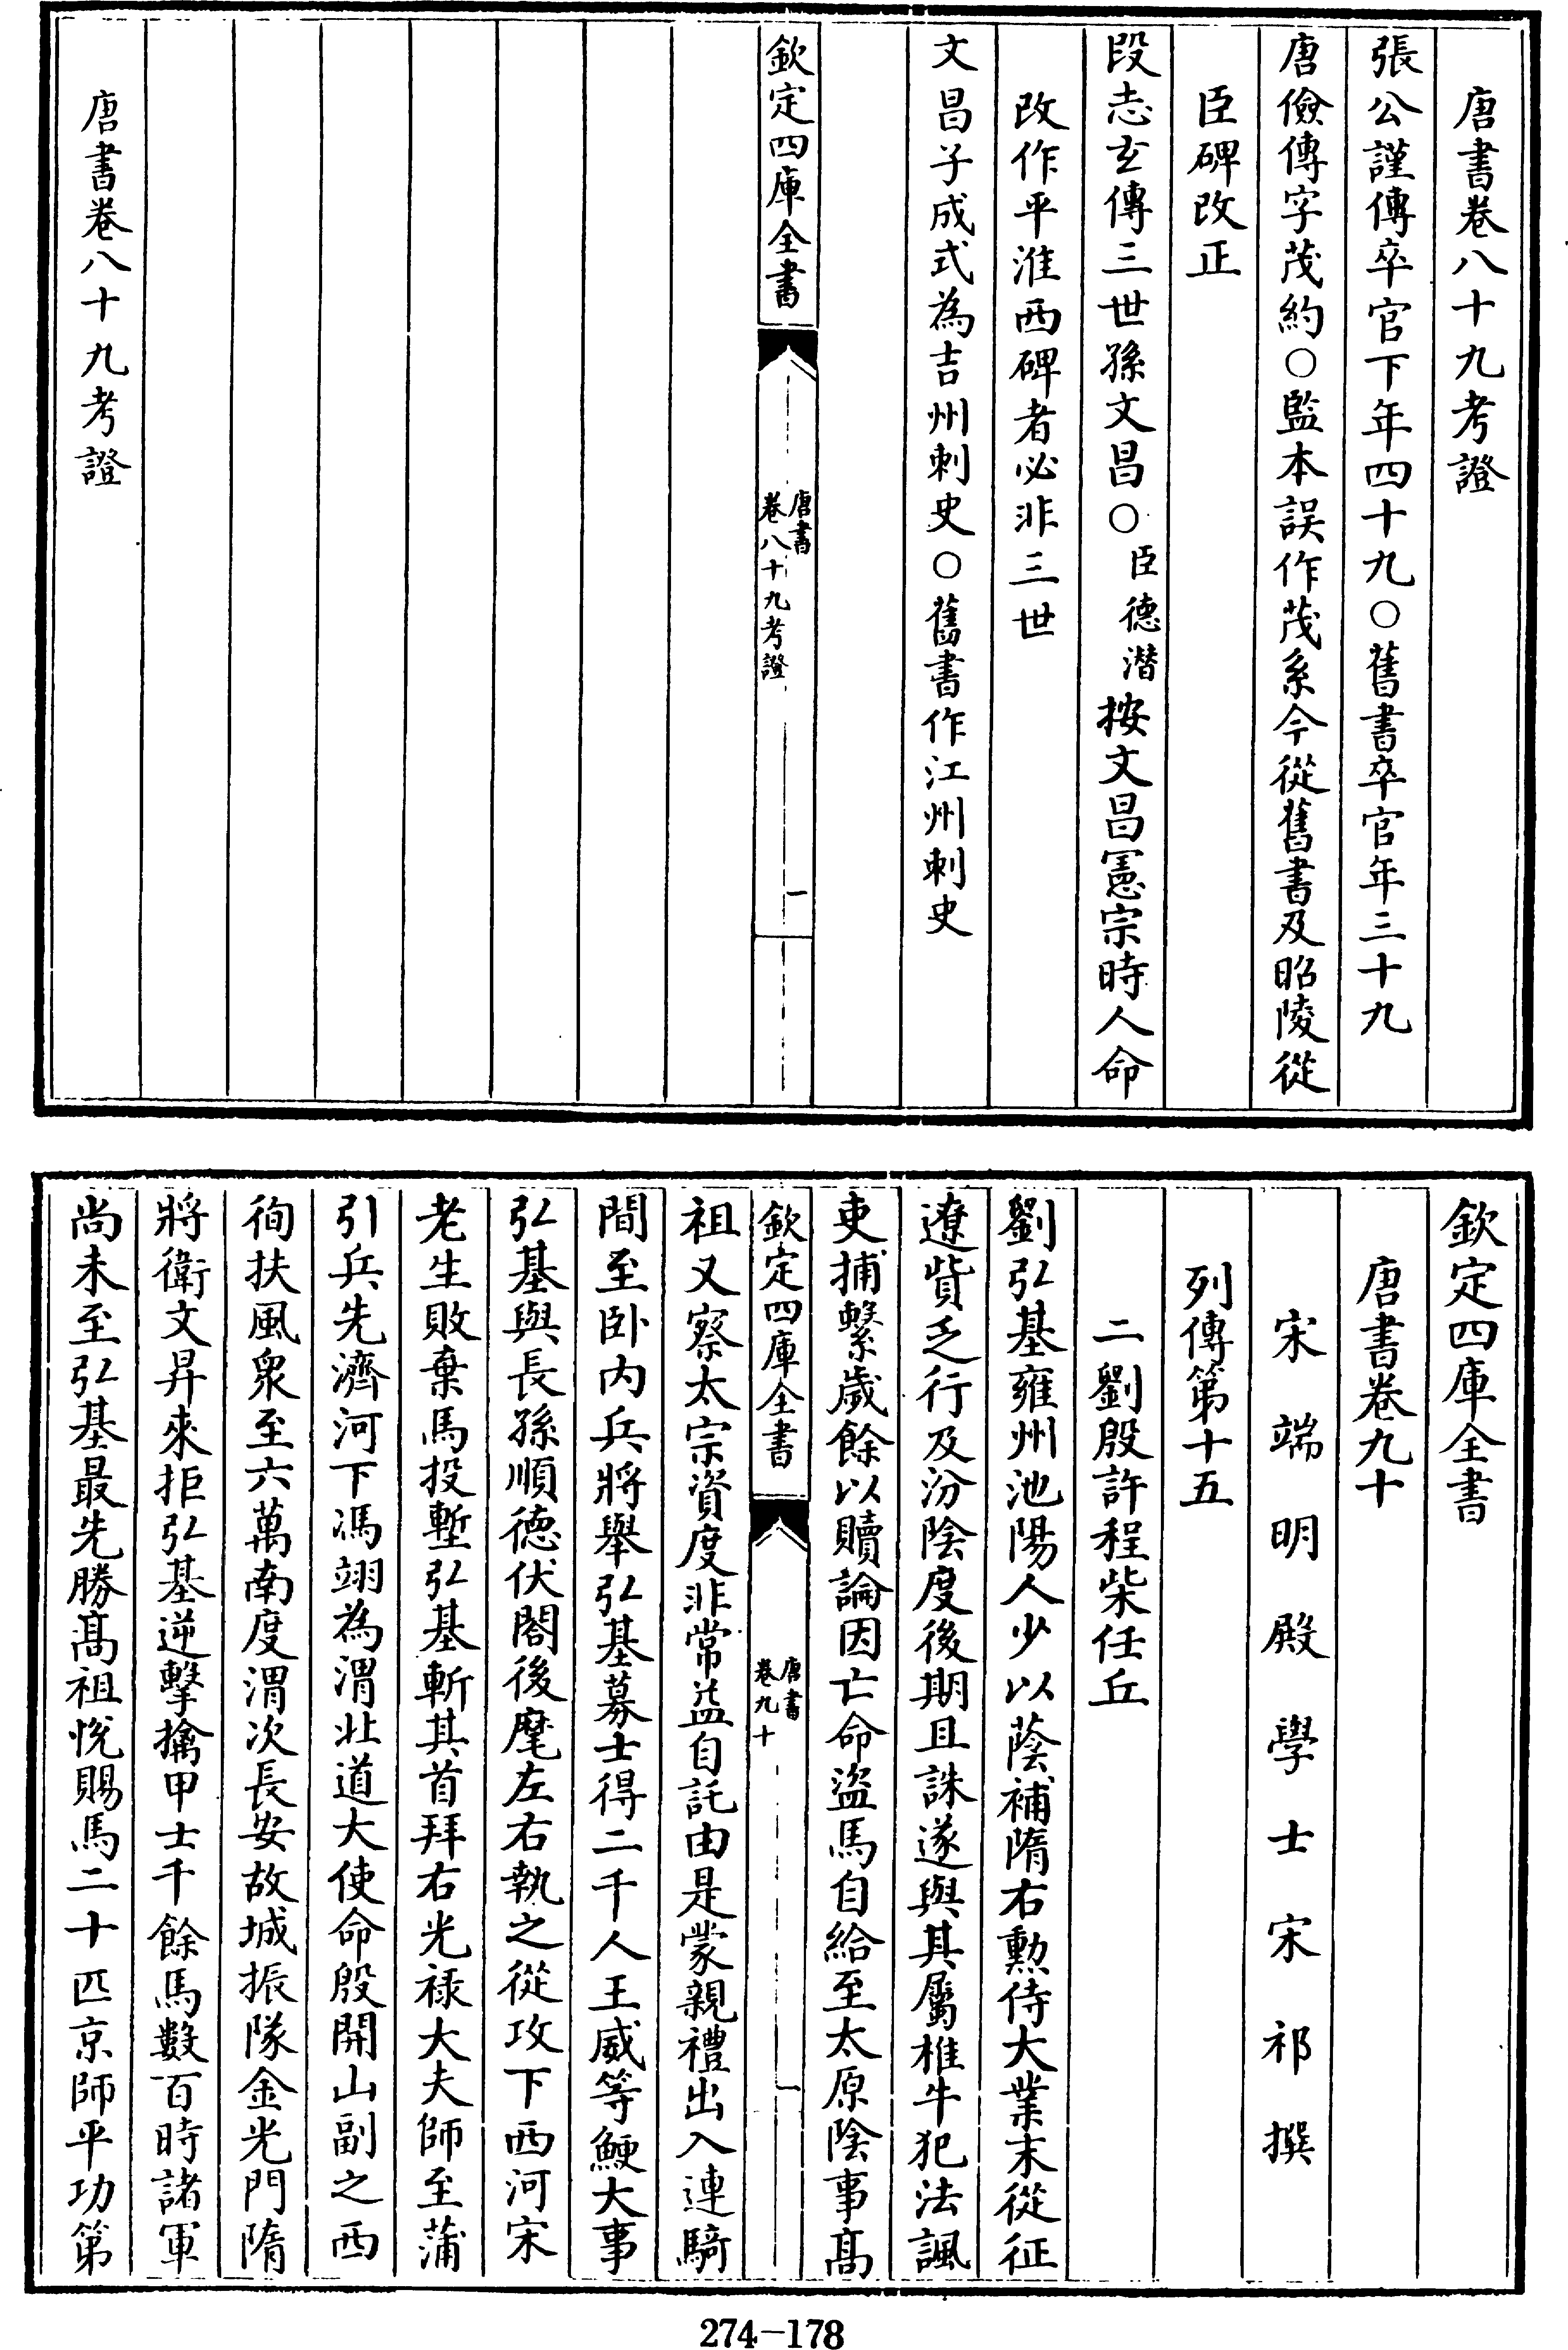 唐書卷八十九考證
張公謹傳卒官下年四十九○舊書卒官年三十九
唐儉傳字茂約○監本誤作茂系今從舊書及昭陵從
臣碑改正
段志玄傳三世孫文昌○臣德潛按文昌憲宗時人命
改作平淮西碑者必非三世
文昌子成式為吉州刺史○舊書作江州刺史
欽定四庫全書
唐書
卷八十九考證
一
唐書卷八十九考證
欽定四庫全書
唐書卷九十
宋端明殿學士宋祁撰
列傳第十五
二劉殷許程柴任丘
劉弘基雍州池陽人少以蔭補隋右勲侍大業末從征
遼貲乏行及汾陰度後期且誅遂與其屬椎牛犯法諷
吏捕繫歲餘以贖論因亡命盜馬自給至太原陰事髙
欽定四庫全書
唐書
卷九十
一
祖又察太宗資度非常益自託由是蒙親禮出入連騎
間至卧内兵將舉弘基募士得二千人王威等鯁大事
弘基與長孫順德伏閤後麾左右執之從攻下西河宋
老生敗棄馬投塹弘基斬其首拜右光禄大夫師至蒲
引兵先濟河下馮翊為渭北道大使命殷開山副之西
徇扶風衆至六萬南度渭次長安故城振隊金光門隋
將衛文昇來拒弘基逆擊擒甲士千餘馬數百時諸軍
尚未至弘基最先勝髙祖悅賜馬二十匹京師平功第
274-178